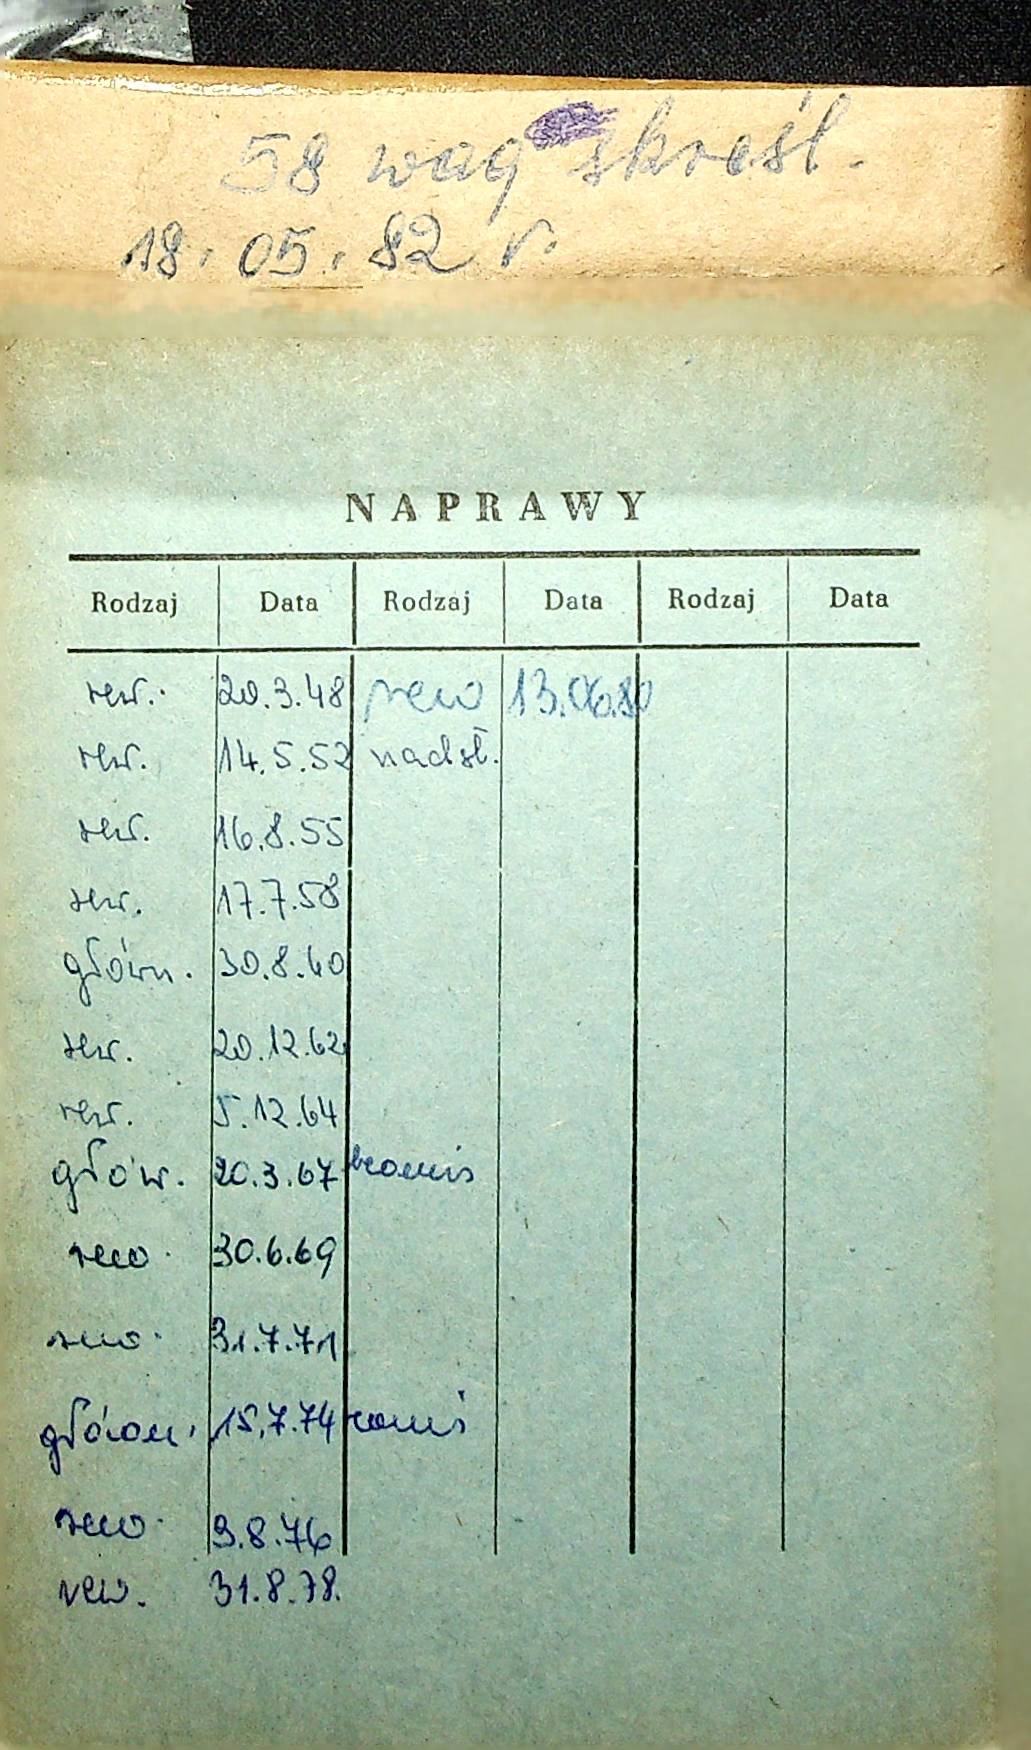 58 wag skreśl.
18.05.82 r.
NAPRAWY
Rodzaj Data Rodzaj Data Rodzaj Data
rew. 20.3.48 rew 13.06.80
rew. 14.5.52 nadst.
rew. 16.8.55
rew. 17.7.58
główn. 30.8.60
rew. 20.12.62
rew. 5.12.64
głów. 20.3.67
rew. 30.6.69
rew. 31.7.71
główn. 15.7.74
rew. 9.8.76
rew. 31.8.78.